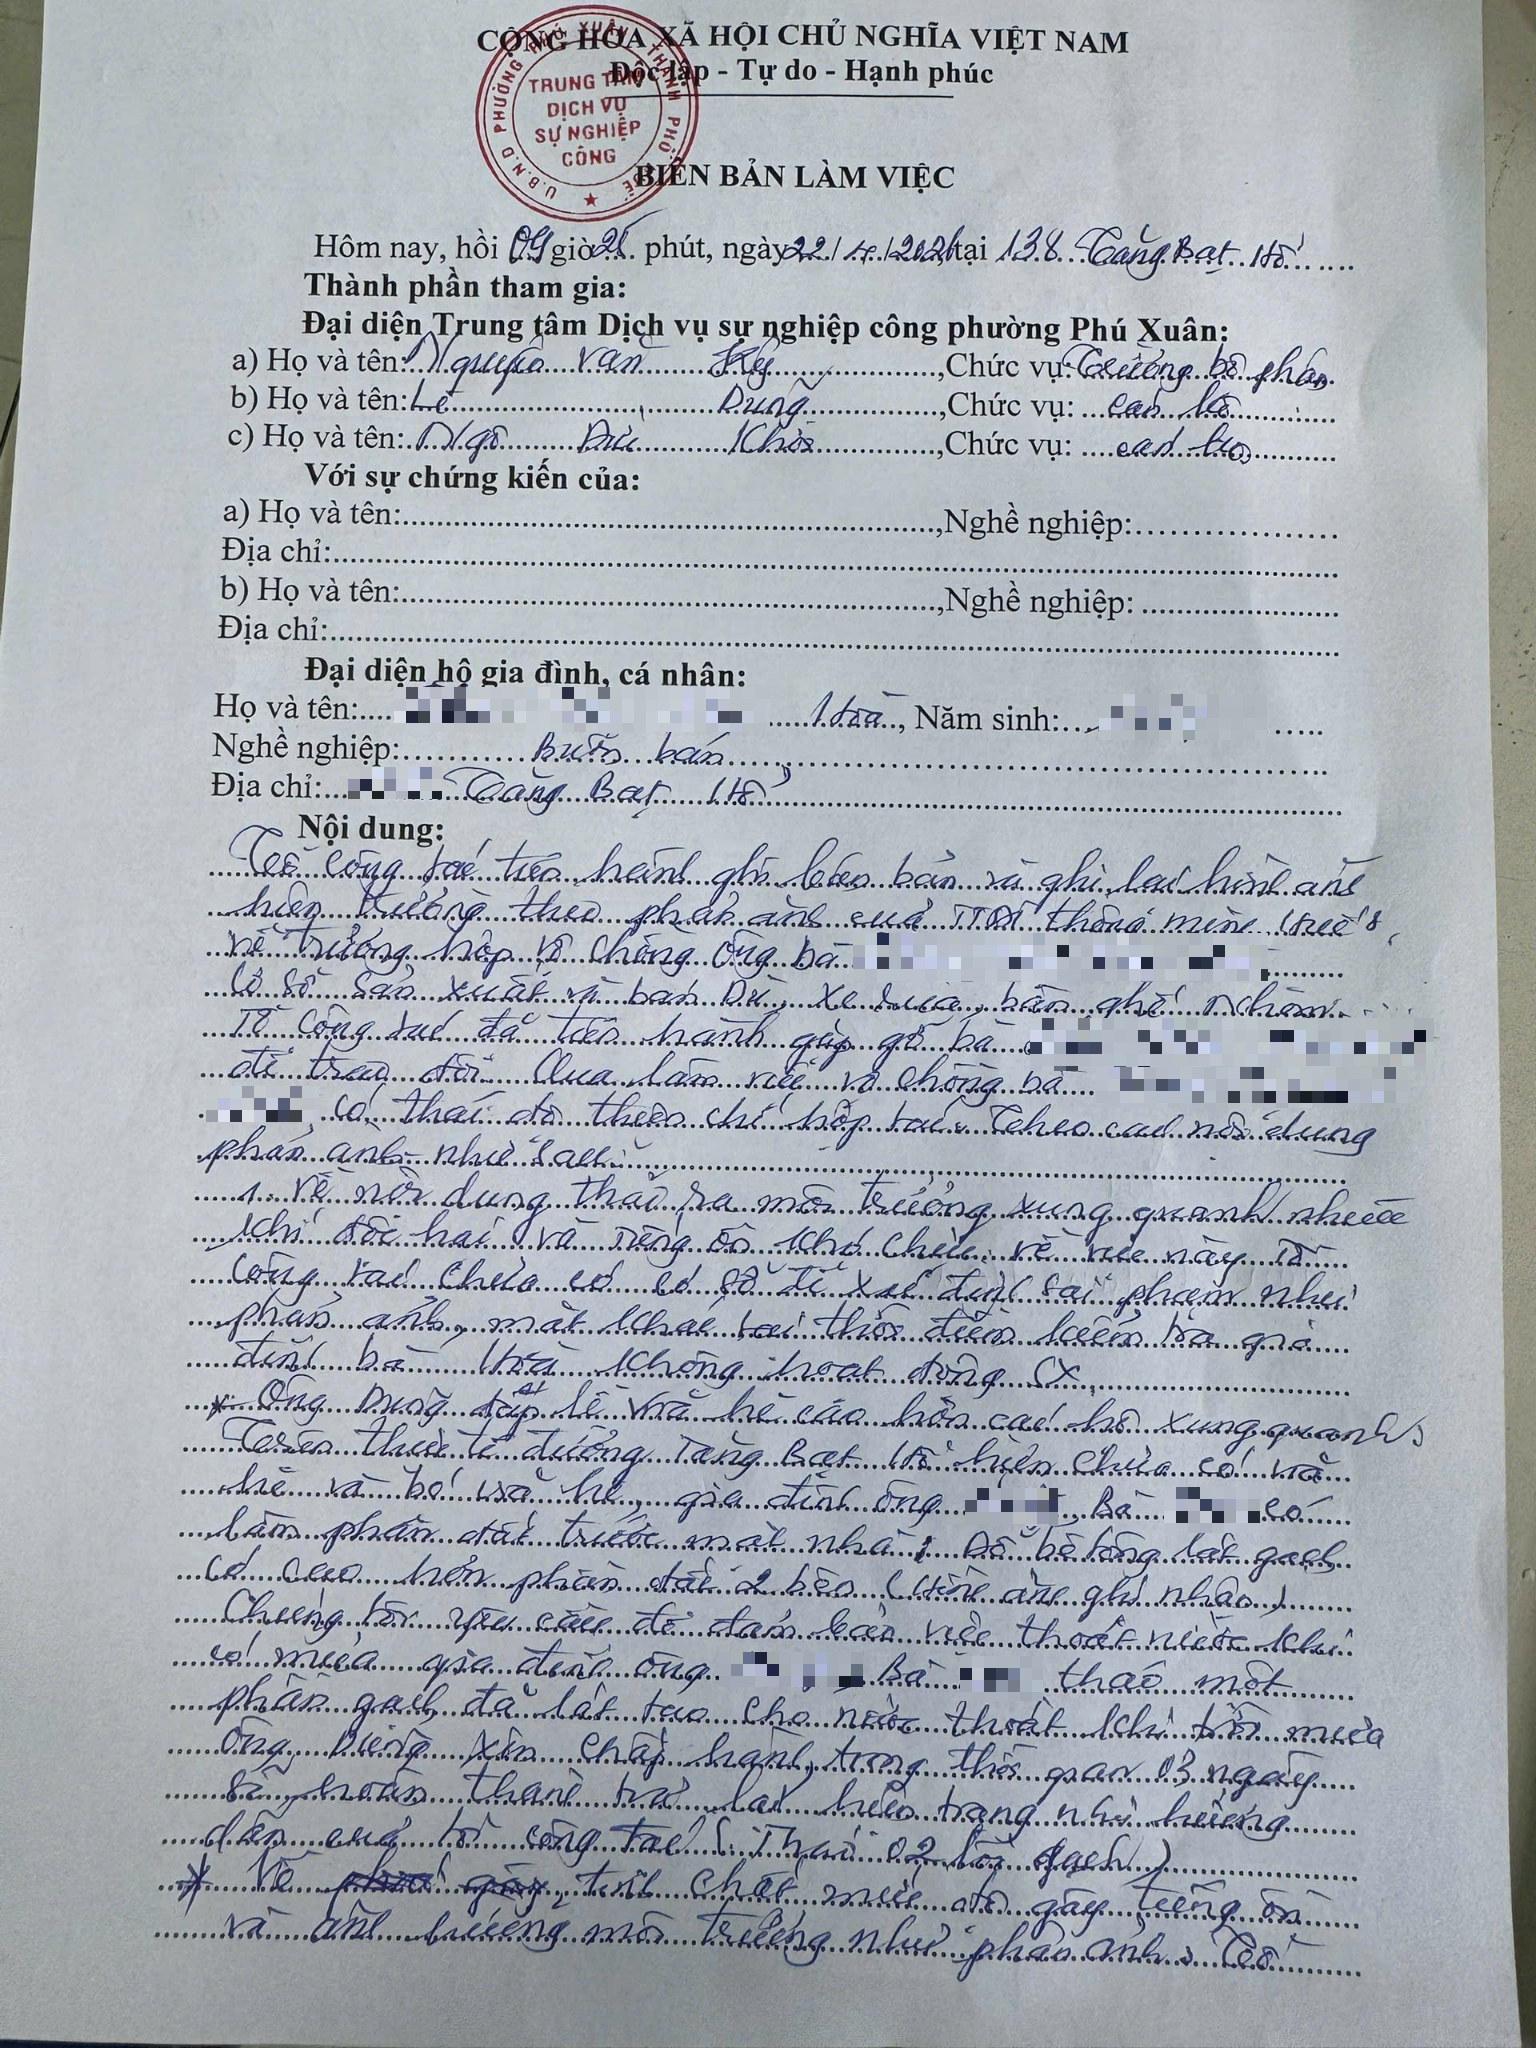 CỘNG HÒA XÃ HỘI CHỦ NGHĨA VIỆT NAM
Độc lập - Tự do - Hạnh phúc
U.B.N.D PHƯỜNG PHÚ XUÂN THÀNH PHỐ HUẾ
TRUNG TÂM
DỊCH VỤ
SỰ NGHIỆP
CÔNG
BIÊN BẢN LÀM VIỆC
Hôm nay, hồi 09 giờ 25 phút, ngày 22/4/2026, tại 138 Tăng Bạt Hổ
Thành phần tham gia:
Đại diện Trung tâm Dịch vụ sự nghiệp công phường Phú Xuân:
a) Họ và tên: Nguyễn Văn Kỳ, Chức vụ: Trưởng bộ phận
b) Họ và tên: Lê Dũng, Chức vụ: cán bộ
c) Họ và tên: Ngô Khôi, Chức vụ: cán bộ
Với sự chứng kiến của:
a) Họ và tên:, Nghề nghiệp:
Địa chỉ:
b) Họ và tên:, Nghề nghiệp:
Địa chỉ:
Đại diện hộ gia đình, cá nhân:
Họ và tên: Hoà, Năm sinh:
Nghề nghiệp: Buôn bán
Địa chỉ: Tăng Bạt Hổ
Nội dung:
Tổ công tác tiến hành ghi biên bản và ghi lại hình ảnh
hiện trường theo phản ánh của TTĐH thông minh Huế
về trường hợp vợ chồng ông bà
Cơ sở sản xuất và bán Dù, xe bàn ghế nhôm
Tổ công tác đã tiến hành gặp gỡ bà
để trao đổi. Qua làm việc vợ chồng bà
có thái độ thiện chí hợp tác. Theo các nội dung
phản ánh như sau:
1. Về nội dung thải ra môi trường xung quanh nhiều
khí độc hại và tiếng ồn khó chịu, về việc này Tổ
công tác chưa có cơ sở để xác định sai phạm như
phản ánh, mặt khác tại thời điểm kiểm tra gia
đình bà Hoà không hoạt động SX.
* Ông Dũng lề vỉa hè cao hơn các hộ xung quanh,
Trên thực tế đường Tăng Bạt Hổ hiện chưa có vỉa
hè và bó vỉa hè, gia đình ông, Bà có
làm phần đất trước mặt nhà, Đổ bê tông lát gạch
có cao hơn phần đất 2 bên (Hình ảnh ghi nhận)
Chúng tôi yêu cầu để đảm bảo việc thoát nước khi
có mưa gia đình ông, Bà tháo một
phần gạch đã lát tạo cho nước thoát khi trời mưa
Ông Dũng xin chấp hành, trong thời gian 03 ngày
sẽ hoàn thành trả lại hiện trạng như hướng
dẫn của tổ công tác (Tháo 02 lối gạch)
* Về tính chất mức độ gây tiếng ồn
và ảnh hưởng môi trường như phản ánh, Tổ